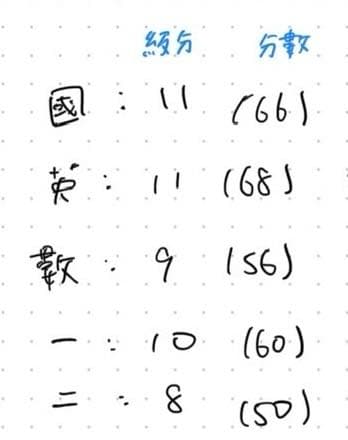 級分 分數
國：11 (66)
英：11 (68)
數：9 (56)
一：10 (60)
二：8 (50)